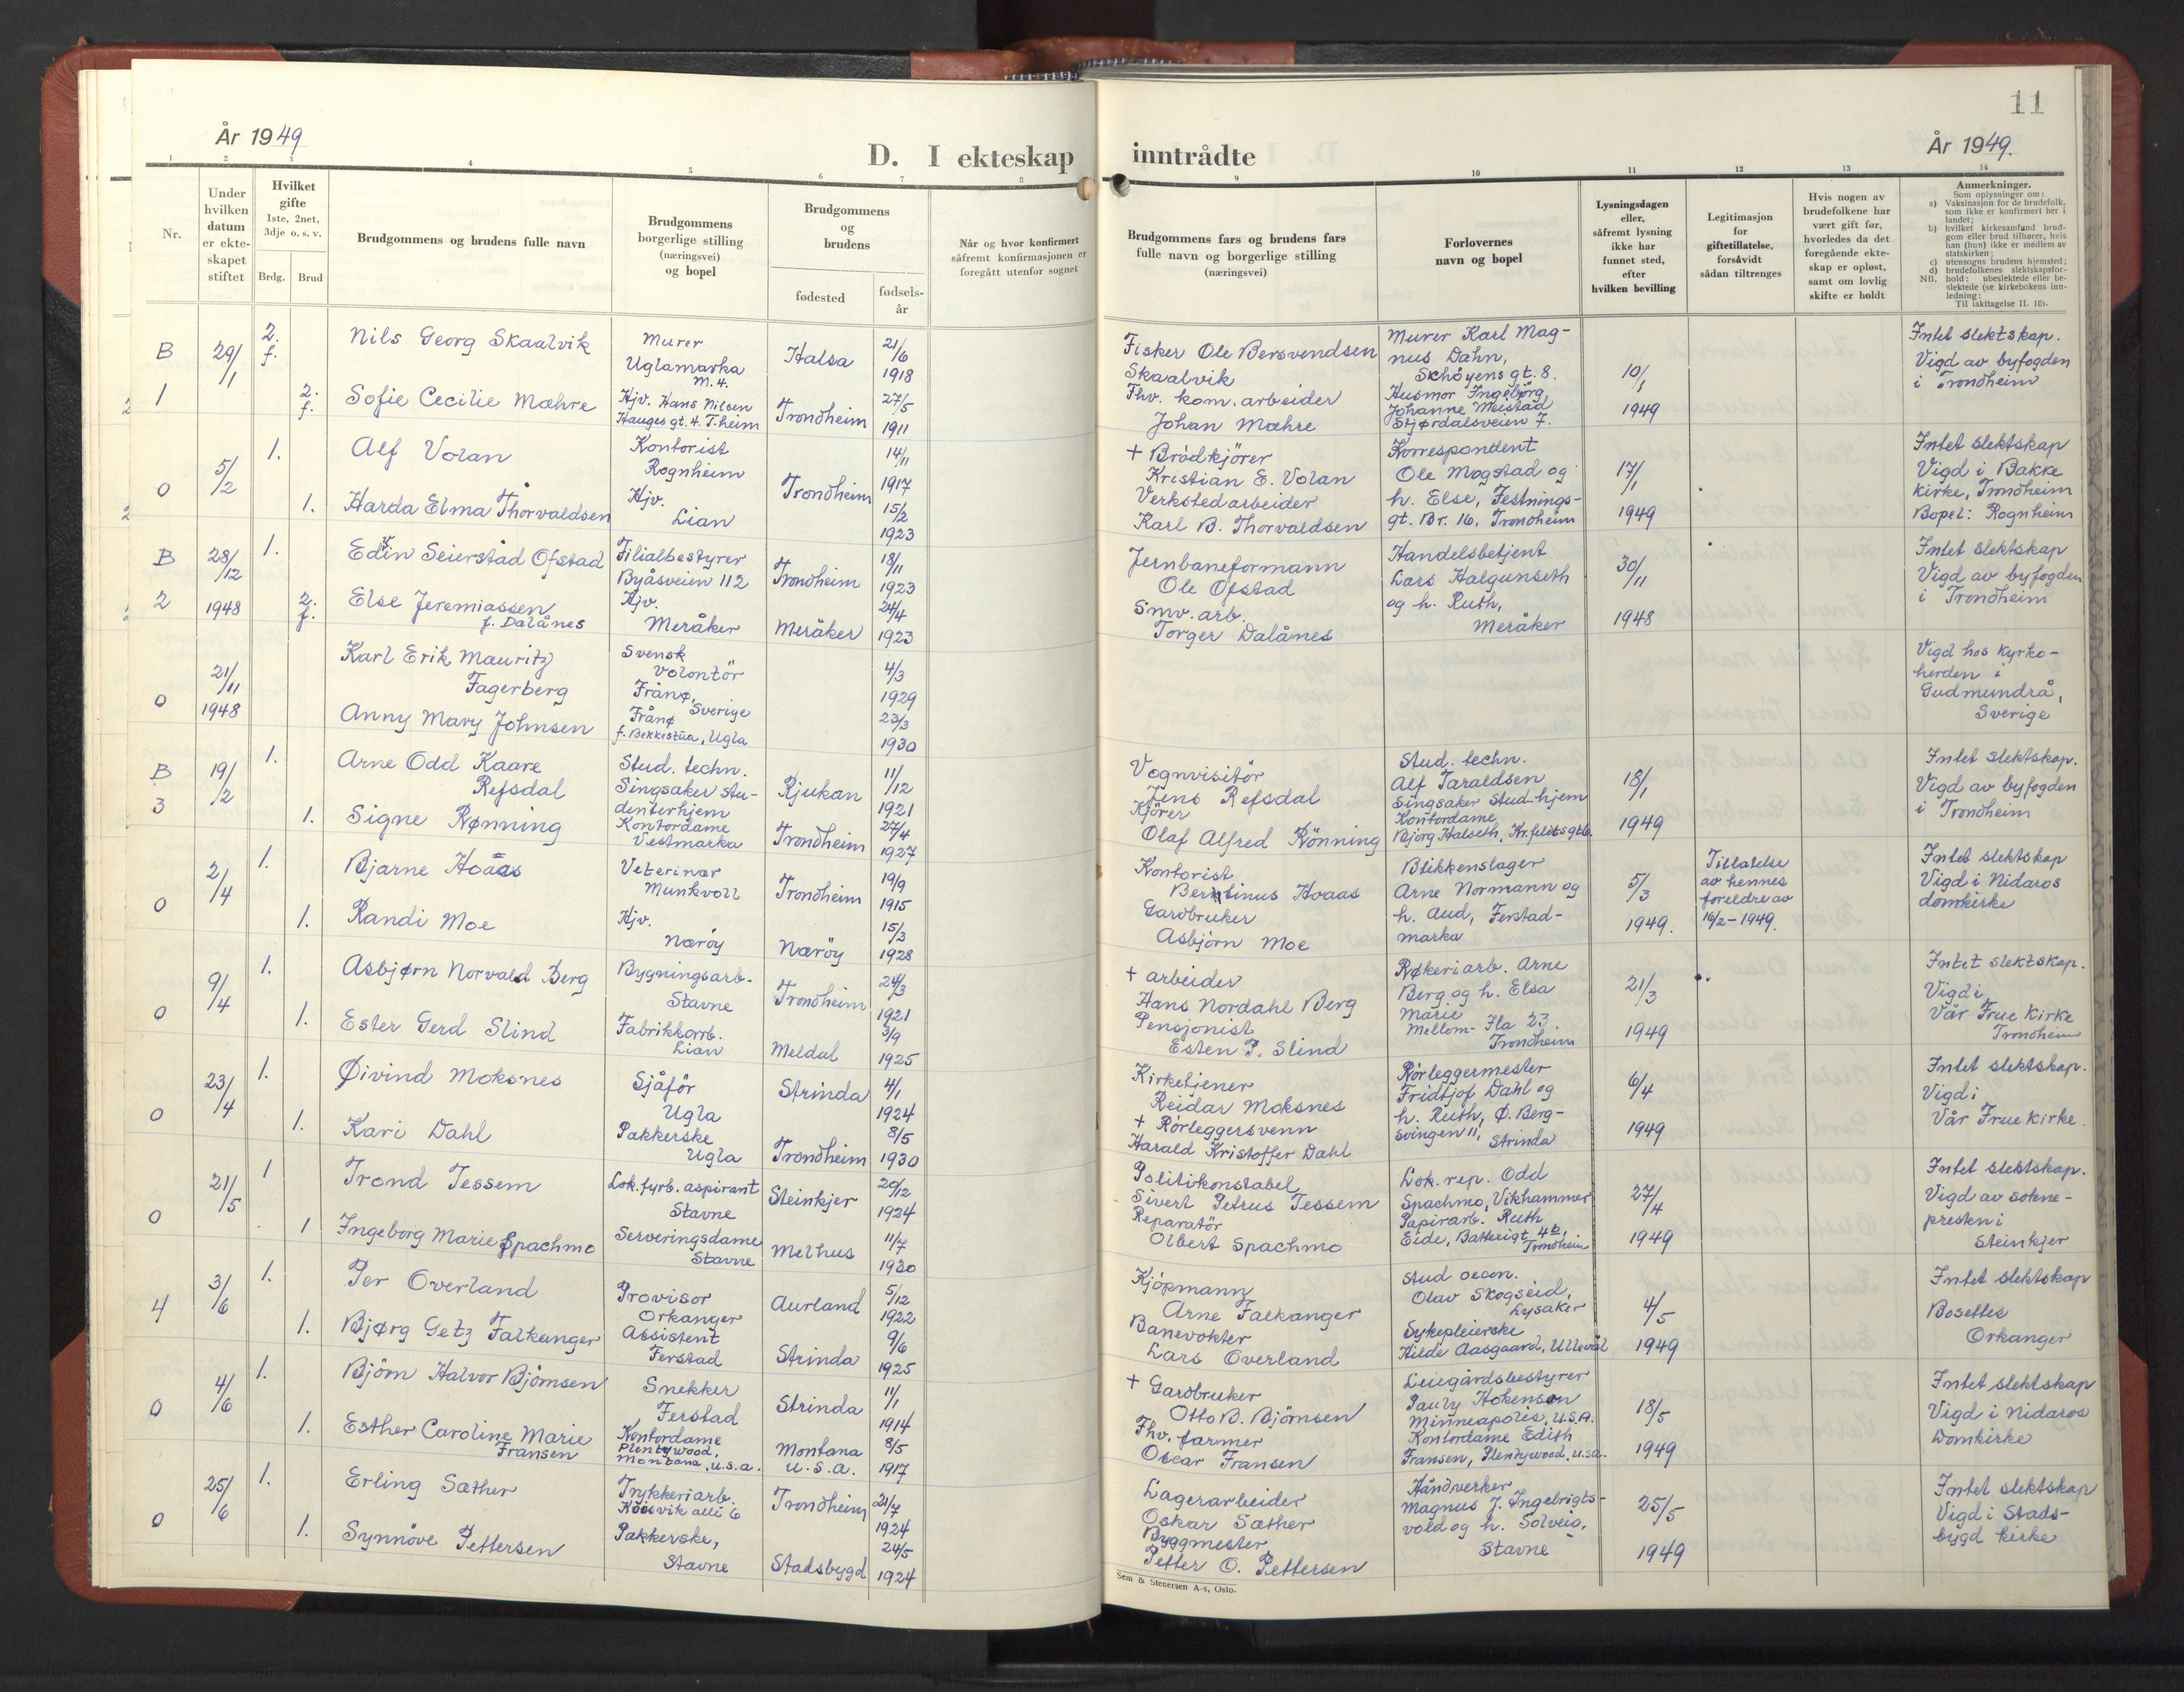 År 1949
D. I ekteskap
1 2 3 4 5 6 7 8
Nr.
Under hvilken datum er ekteskapet stiftet
Hvilket gifte 1ste, 2net, 3dje o. s. v.
Brdg. Brud
Brudgommens og brudens fulle navn
Brudgommens borgerlige stilling (næringsvei) og bopel
Brudgommens og brudens
fødested
fødsels-år
Når og hvor konfirmert såfremt konfirmasjonen er foregått utenfor sognet
B 29/1 2. f. Nils Georg Skaalvik Murer Uglamarka M.4. Halsa 21/6 1918
1 2. f. Sofie Cecilie Mæhre Hjv. Hans Nilsen Hauges gt. 4. T.heim Trondheim 27/5 1911
0 5/2 1. Alf Volan Kontorist Rognheim Trondheim 14/11 1917
1. Harda Elma Thorvaldsen Hjv. Lian 15/2 1923
B 28/12 1. Edin Seierstad Ofstad Filialbestyrer Byåsveien 112 Trondheim 18/11 1923
2 1948 2. f. Else Jeremiassen f. Dalånes Hjv. Meråker Meråker 24/4 1923
0 21/11 1948 Karl Erik Mauritz Fagerberg Svensk Volontör Frånø, Sverige 4/3 1929
Anny Mary Johnsen Frånø f. Bekkestua, Ugla 23/3 1930
B 19/2 1. Arne Odd Kaare Refsdal Stud. techn. Singsaker studenterhjem Rjukan 11/12 1921
3 1. Signe Rønning Kontordame Vestmarka Trondheim 27/4 1927
0 2/4 1. Bjarne Hoaas Veterinær Munkvoll Trondheim 19/9 1915
1. Randi Moe Hjv. Nærøy Nærøy 15/3 1928
0 9/4 1. Asbjørn Norvald Berg Bygningsarb. Stavne Trondheim 24/3 1921
1. Ester Gerd Slind Fabrikkarb. Lian Meldal 3/9 1925
0 23/4 1. Øivind Moksnes Sjåfør Ugla Strinda 4/1 1924
1. Kari Dahl Pakkerske Ugla Trondheim 8/5 1930
0 21/5 1 Trond Tessem Lok.fyrb. aspirant Stavne Steinkjer 20/12 1924
1 Ingeborg Marie Spachmo Serveringsdame Stavne Melhus 11/7 1930
4 3/6 1. Per Overland Provisor Orkanger Aurland 5/12 1922
1. Bjørg Getz Falkanger Assistent Ferstad Strinda 9/6 1925
0 4/6 1. Björn Halvor Björnsen Snekker Ferstad Strinda 11/1 1914
1. Esther Caroline Marie Fransen Kontordame Plentywood, Montana, U.S.A. Montana U.S.A. 8/5 1917
0 25/6 1. Erling Sæther Trykkeriarb. alle 6 Trondheim 21/7 1924
1. Synnöve Pettersen Pakkerske, Stavne Stadsbygd 24/5 1924
11
inntrådte
År 1949.
9 10 11 12 13 14
Brudgommens fars og brudens fars fulle navn og borgerlige stilling (næringsvei)
Forlovernes navn og bopel
Lysningsdagen eller, såfremt lysning ikke har funnet sted, efter hvilken bevilling
Legitimasjon for giftetillatelse, forsåvidt sådan tiltrenges
Hvis nogen av brudefolkene har vært gift før, hvorledes da det foregående ekteskap er opløst, samt om lovlig skifte er holdt
Anmerkninger.
Som oplysninger om:
a) Vaksinasjon for de brudefolk, som ikke er konfirmert her i landet;
b) hvilket kirkesamfund brudgom eller brud tilhører, hvis han (hun) ikke er medlem av statskirken;
c) utensogns brudens hjemsted;
d) brudefolkenes slektskapsforhold: ubeslektede eller beslektede (se kirkebokens innledning:
NB. Til iakttagelse II. 10).
Fisker Ole Bersvendsen Skaalvik
Fhv. kom. arbeider Johan Mæhre
Murer Karl Magnus Dahn, Schöyens gt. 8.
Husmor Ingebjørg Johanne Meistad Stjørdalsveien 7.
10/1 1949
Intet slektskap. Vigd av byfogden i Trondheim
+ Brödkjörer Kristian E. Volan
Verkstedarbeider Karl B. Thorvaldsen
Korrespondent Ole Mogstad og h. Else, Festningsgt. Br. 16, Trondheim
17/1 1949
Intet slektskap Vigd i Bakke kirke, Trondheim Bopel: Rognheim
Jernbaneformann Ole Ofstad
Smv. arb. Torger Dalånes
Handelsbetjent Lars Halgunseth og h. Ruth, Meråker
30/11 1948
Intet slektskap Vigd av byfogden i Trondheim
Vigd hos kyrkoherden i Gudmundrå, Sverige
Vognvisitör Jens Refsdal
Kjörer Olaf Alfred Rönning
Stud. techn. Alf Taraldsen Singsaker stud-hjem
Kontordame Bjorg Halseth, Kr.feldts gt
18/1 1949
Intet slektskap. Vigd av byfogden i Trondheim
Kontorist Berntinus Hoaas
Gardbruker Asbjörn Moe
Blikkenslager Arne Normann og h. Aud, Ferstadmarka
5/3 1949.
Tillatelse av hennes foreldre av 16/2-1949.
Intet slektskap Vigd i Nidaros domkirke
+ arbeider Hans Nordahl Berg
Pensjonist Esten P. Slind
Røkeriarb. Arne Berg og h. Elsa Marie Mellom-Ila 23. Trondheim
21/3 1949
Intet slektskap. Vigd i Vår Frue kirke Trondheim
Kirketjener Reidar Moksnes
+ Rörleggersvenn Harald Kristoffer Dahl
Rörleggermester Fridtjof Dahl og h. Ruth, Ø. Bergsvingen 11, Strinda
6/4 1949
Intet slektskap. Vigd i Vår Frue kirke.
Politikonstabel Sivert Petrus Tessem
Reparatör Olbert Spachmo
Lok. rep. Odd Spachmo, Vikhammer
Papirarb. Ruth Eide, Batterigt. 4b, Trondheim
27/4 1949
Intet slektskap. Vigd av sokne-presten i Steinkjer
Kjöpmann Arne Falkanger
Banevokter Lars Overland
Stud oecon. Olav Skogseid, Lysaker
Sykepleierske Hilde Aasgaard, Ullevål
4/5 1949
Intet slektskap Bosettes Orkanger
+ Gardbruker Otto B. Björnsen
Fhv. farmer Oscar Fransen
Leiegårdsbestyrer Pauly Hokenson Minneapolis, U.S.A.
Kontordame Edith Fransen, Plentywood, U.S.A.
18/5 1949
Intet slektskap Vigd i Nidaros Domkirke
Lagerarbeider Oskar Sæther
Byggmester Petter O. Pettersen
Håndverker Magnus J. Ingebrigtsvold og h. Solveig, Stavne
25/5 1949
Intet slektskap Vigd i Stadsbygd kirke
Sem & Stenersen A-s, Oslo.